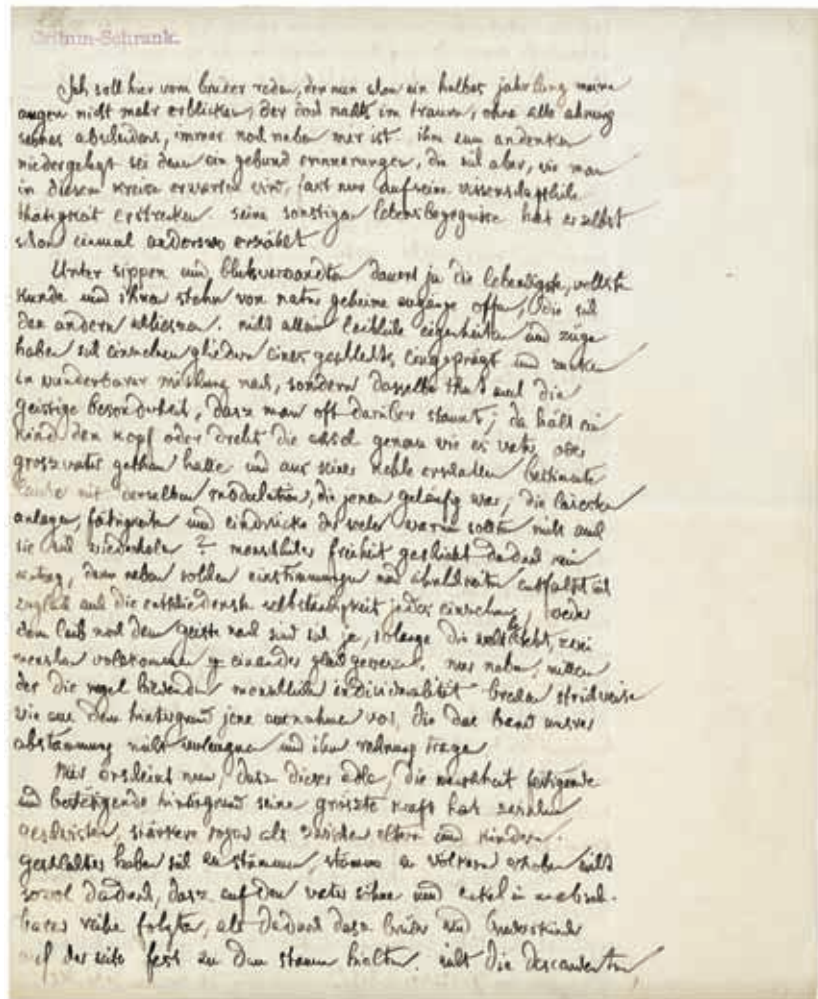 Grimm-Schrank.
Ich soll hier vom bruder reden, den nun schon ein halbes jahr lang meine
augen nicht mehr erblicken, der doch nachts im traum, ohne alle ahnung
seines abscheidens, immer noch neben mir ist. ihm zum andenken
niedergelegt sei denn ein gebund erinnerungen, die sich aber, wie man
in diesem kreise erwarten wird, fast nur auf seine wissenschaftliche
thätigkeit erstrecken. seine sonstigen lebensbegegnisse hat er selbst
schon einmal anderswo erzählt.
Unter sippen und blutsverwandten dauert ja die lebendigste, vollste
kunde und ihnen stehn von natur geheime zugänge offen, die sich
den andern schlieszen. nicht allein leibliche eigenheiten und züge
haben sich einzelnen gliedern eines geschlechts eingeprägt und zucken
in wunderbarer mischung nach, sondern dasselbe thut auch die
geistige besonderheit, dasz man oft darüber staunt; da hält ein
kind den kopf oder dreht die achsel genau wie es vater oder
groszvater gethan hatte und aus seiner kehle erschallen bestimmte
laute mit derselben modulation, die jenen geläufig war; die leisesten
anlagen, fähigkeiten und eindrücke der seele warum sollten nicht auch
sie sich wiederholen? menschlicher freiheit geschieht dadurch kein
eintrag, denn neben solchen einstimmungen und ähnlichkeiten entfaltet sich
zugleich auch die entschiedenste selbständigkeit jedes einzelnen, weder
dem leib noch dem geiste nach sind sich je, solange die welt steht, zwei
menschen vollkommen einander gleich gewesen. nur neben, mitten
der die regel bildenden menschlichen individualität brechen strichweise
wie aus dem hintergrund jene ausnahmen vor, die das band unsrer
abstammung nicht verleugnen und ihm rechnung tragen.
Mir erscheint nun, dasz dieser edle, die menschheit festigende
und bestätigende hintergrund seine gröszte kraft hat zwischen
geschwistern, stärkere sogar als zwischen eltern und kindern.
geschlechter haben sich zu stämmen, stämme zu völkern erhoben nicht
sowol dadurch, dasz auf den vater söhne und enkel in unabseh-
barer reihe folgten, als dadurch dasz brüder und bruderskinder
auf der seite fest zu dem stamm hielten. nicht die descendenten,